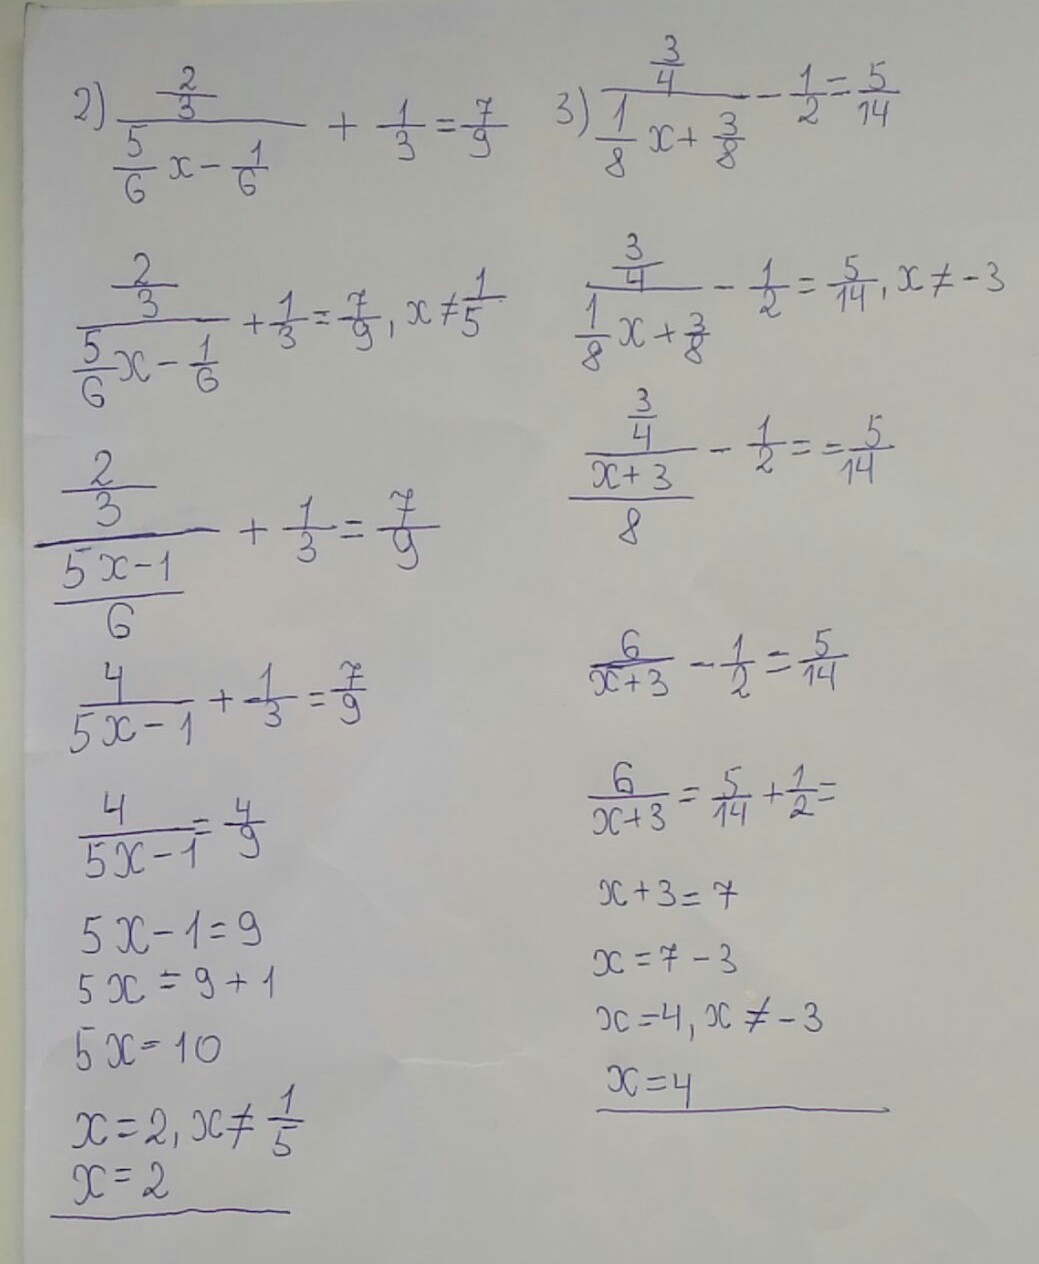 2) (2/3)/(5/6 x - 1/6) + 1/3 = 7/9
(2/3)/(5/6 x - 1/6) + 1/3 = 7/9, x ≠ 1/5
(2/3)/((5x-1)/6) + 1/3 = 7/9
4/(5x-1) + 1/3 = 7/9
4/(5x-1) = 4/9
5x-1=9
5x=9+1
5x=10
x=2, x≠ 1/5
x=2
3) (3/4)/(1/8 x + 3/8) - 1/2 = 5/14
(3/4)/(1/8 x + 3/8) - 1/2 = 5/14, x ≠ -3
(3/4)/((x+3)/8) - 1/2 = = 5/14
6/(x+3) - 1/2 = 5/14
6/(x+3) = 5/14 + 1/2 =
x+3=7
x=7-3
x=4, x≠-3
x=4